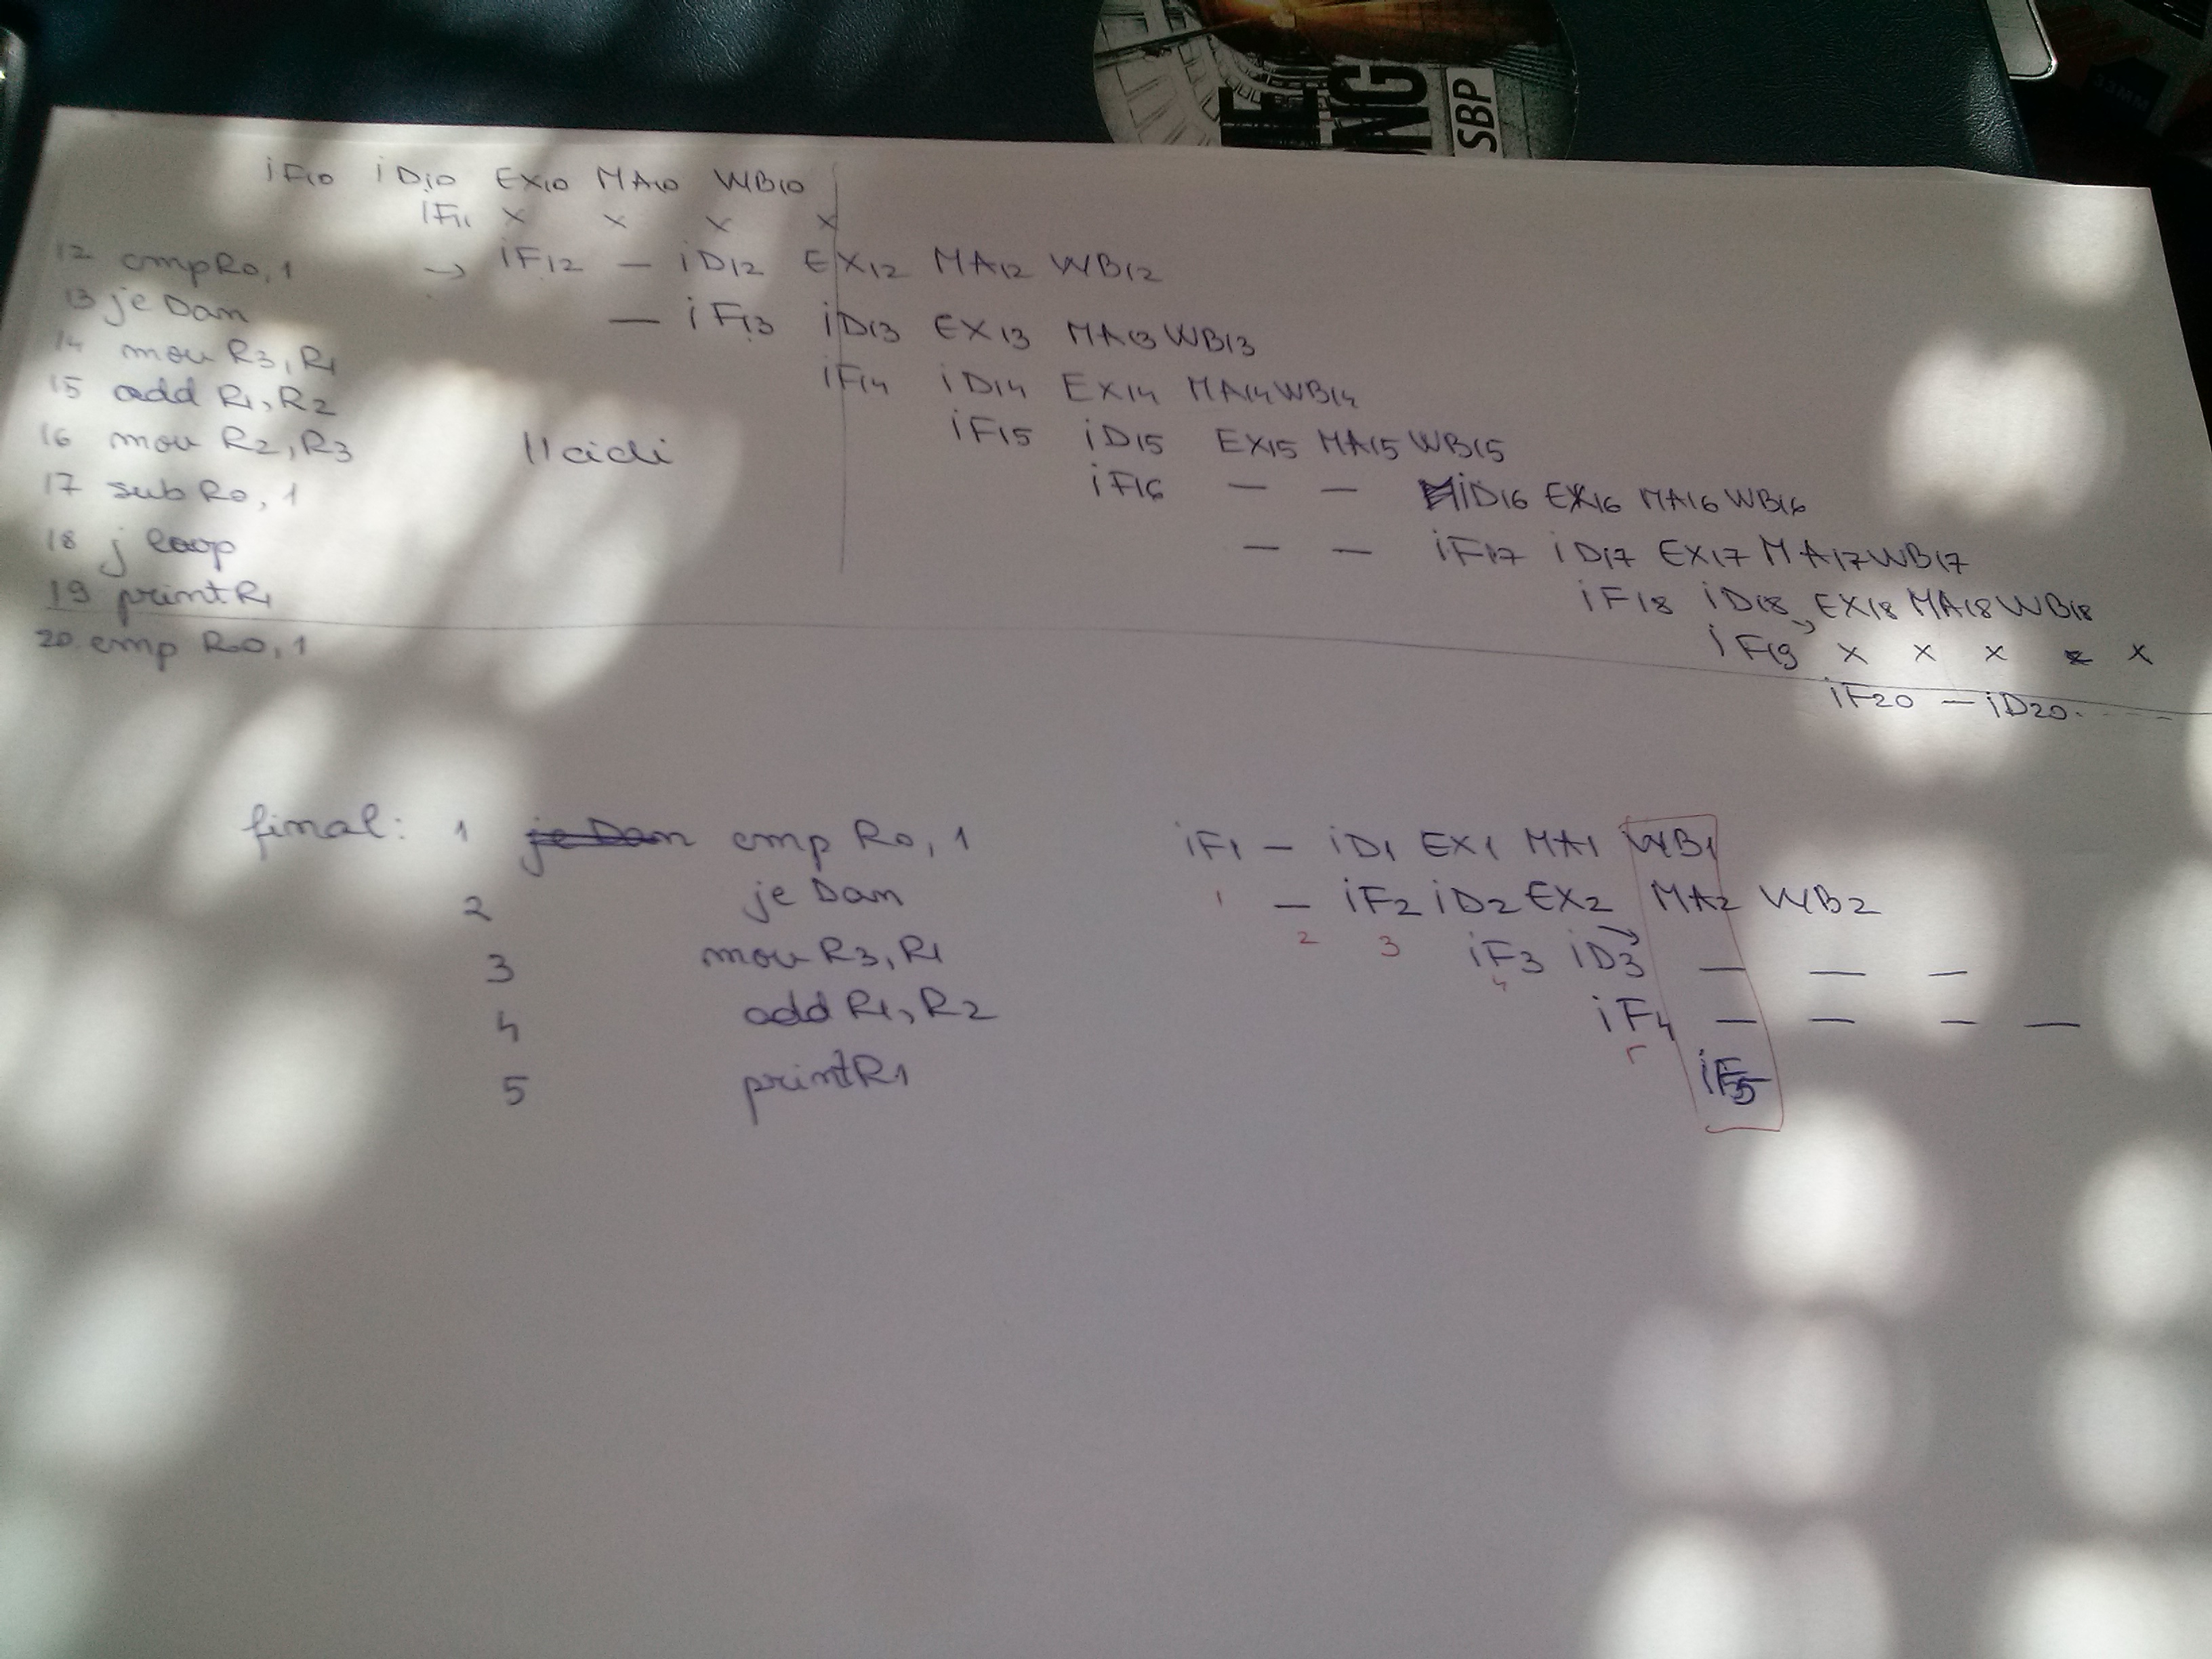 SBP
iF10 iD10 EX10 MA10 WB10
iF11 x x x x
12 cmp R0, 1 → iF12 — iD12 EX12 MA12 WB12
13 je Dan — iF13 iD13 EX13 MA13 WB13
14 mov R3, R1 iF14 iD14 EX14 MA14 WB14
15 add R1, R2 iF15 iD15 EX15 MA15 WB15
16 mov R2, R3 11 cicli iF16 — — iD16 EX16 MA16 WB16
17 sub R0, 1 — — iF17 iD17 EX17 MA17 WB17
18 j loop iF18 iD18 EX18 MA18 WB18
19 print R1 iF19 x x x x
20. cmp R0, 1 iF20 — iD20.
final: 1 je Dan cmp R0, 1 iF1 — iD1 EX1 MA1 WB1
2 je Dan 1 — iF2 iD2 EX2 MA2 WB2
3 mov R3, R1 2 3 iF3 iD3 — — —
4 add R1, R2 4 iF4 — — — —
5 print R1 5 iF5